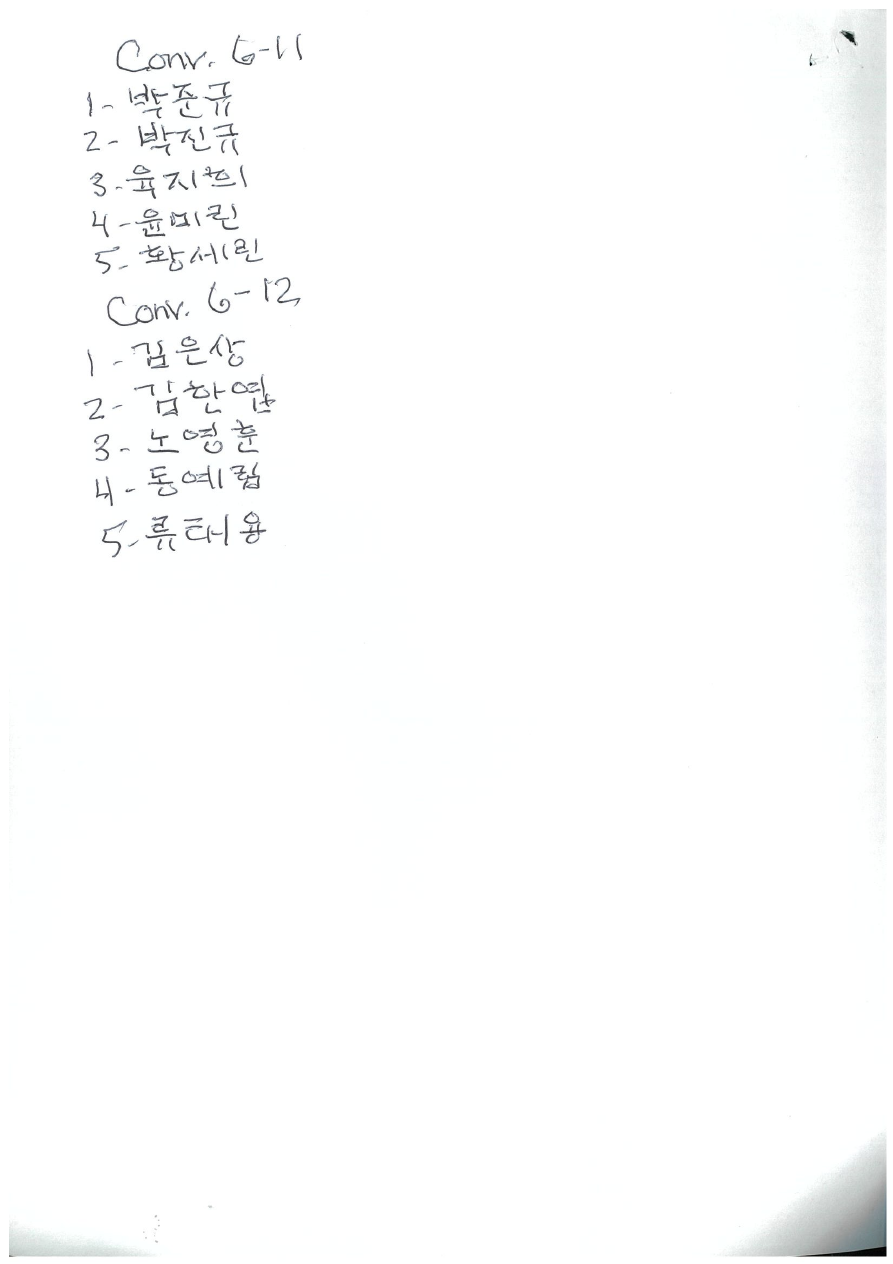 Conv. 6-11
1- 박준규
2- 박진규
3- 육지희
4- 윤미린
5- 황세린
Conv. 6-12
1- 김은상
2- 김한엽
3- 노영훈
4- 동예림
5- 류태용